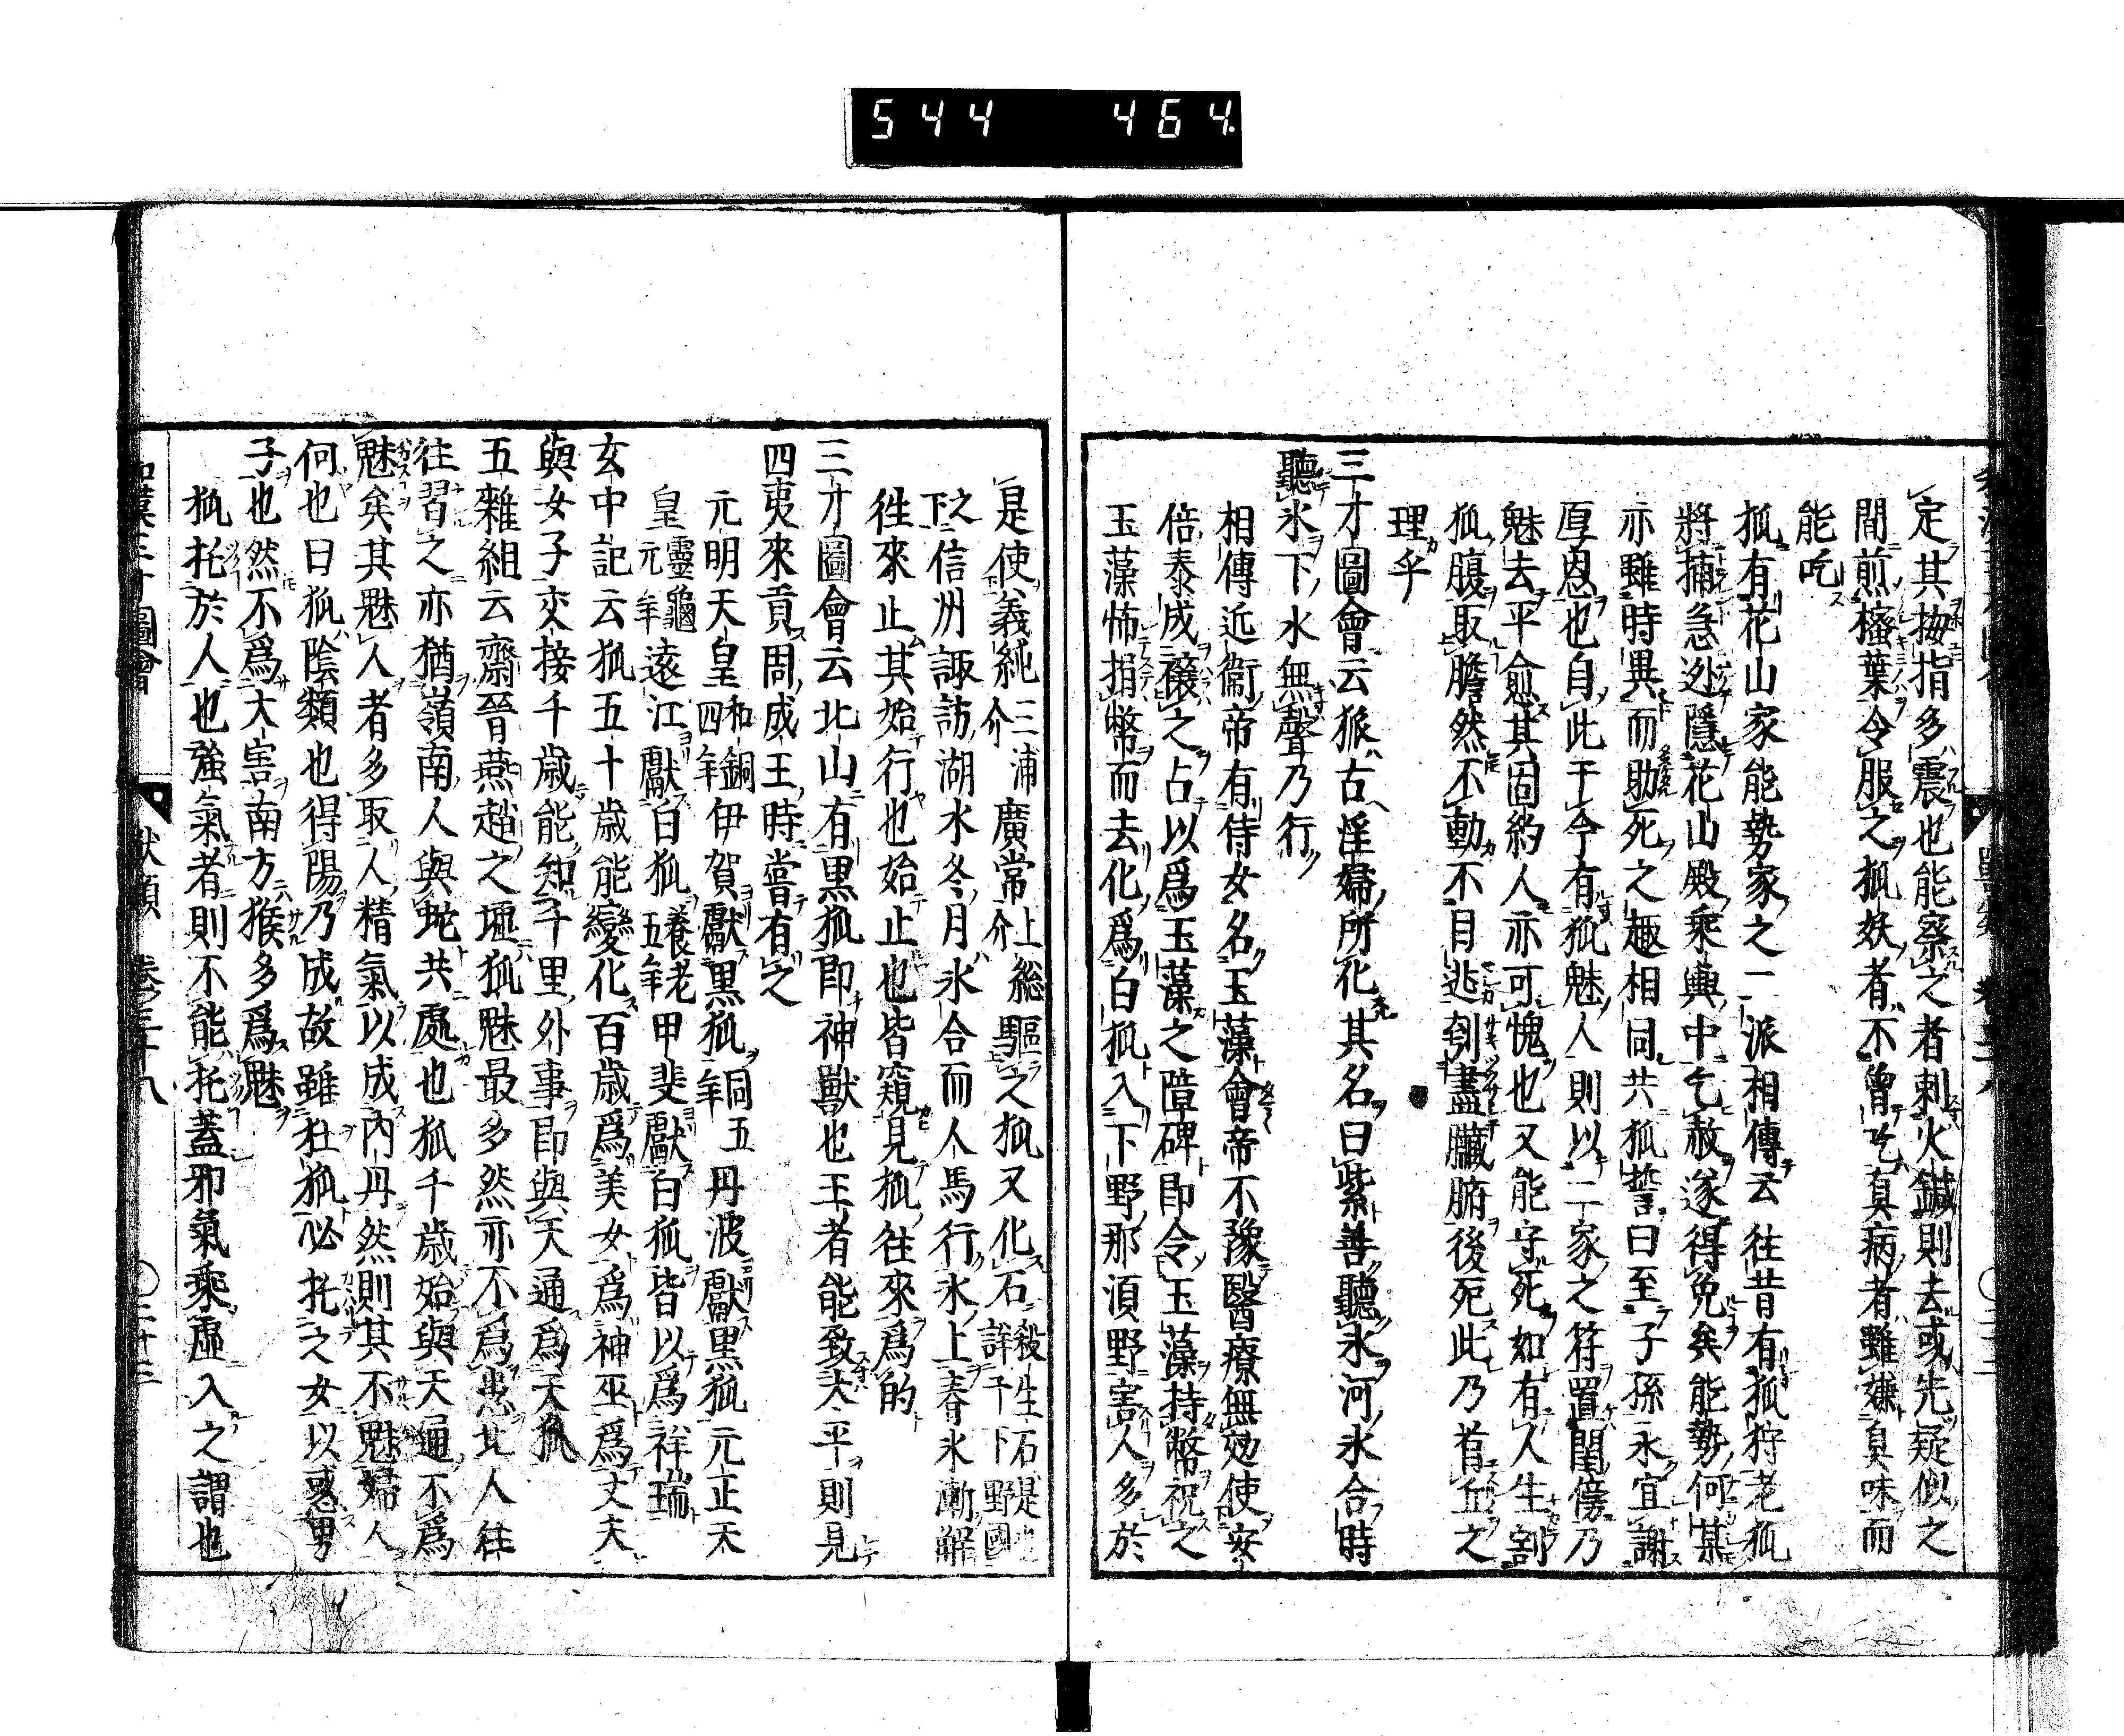 544 464.
定其拇指多震也能察之者刺火鍼則去或先疑似之
間煎樒葉令服之狐妖者不曾吃真病者雖嫌臭味而
能吃
狐有花山家能勢家之二派相傳云往昔有狐狩老狐
將捕急迯隱花山殿乘輿中乞赦遂得免矣能勢何某
亦雖時異而助死之趣相同共狐誓曰至子孫永宜謝
厚恩也自此于今有狐魅人則以二家之符置閨傍乃
魅去平愈其固約人亦可愧也又能守死如有人生割
狐腹取膽然不動不目迯刳盡臟腑後死此乃首丘之
理乎
三才圖會云狐古淫婦所化其名曰紫善聽氷河氷合時
聽氷下水無聲乃行
相傳近衞帝有侍女名玉藻會帝不豫醫療無効使安
倍泰成禳之占以爲玉藻之障碑即令玉藻持幣祝之
玉藻怖捐幣而去化爲白狐入下野那須野害人多於
是使義純三浦介廣常上総介驅之狐又化石殺生石是也詳于下野國
之下信州諏訪湖水冬月氷合而人馬行氷上春氷漸解
徃來止其始行也始止也皆窺見狐徃來爲的
三才圖會云北山有黒狐即神獸也王者能致太平則見
四夷來貢周成王時嘗有之
元明天皇和銅四年伊賀獻黒狐同五年丹波獻黒狐元正天
皇靈龜元年遠江獻白狐養老五年甲斐獻白狐皆以爲祥瑞
玄中記云狐五十歳能變化百歳爲美女爲神巫爲丈夫
與女子交接千歳能知千里外事即與天通爲天狐
五雜組云齋晉燕趙之墟狐魅最多然亦不爲患北人徃
徃習之亦猶嶺南人與蛇共處也狐千歳始與天通不爲
魅矣其魅人者多取人精氣以成内丹然則其不魅婦人
何也曰狐陰類也得陽乃成故雖牡狐必托之女以惑男
子也然不爲大害南方猴多爲魅
狐托於人也強氣者則不能托蓋邪氣乘虚入之謂也
和漢三才圖會 獸類 卷三十八 〇二十三